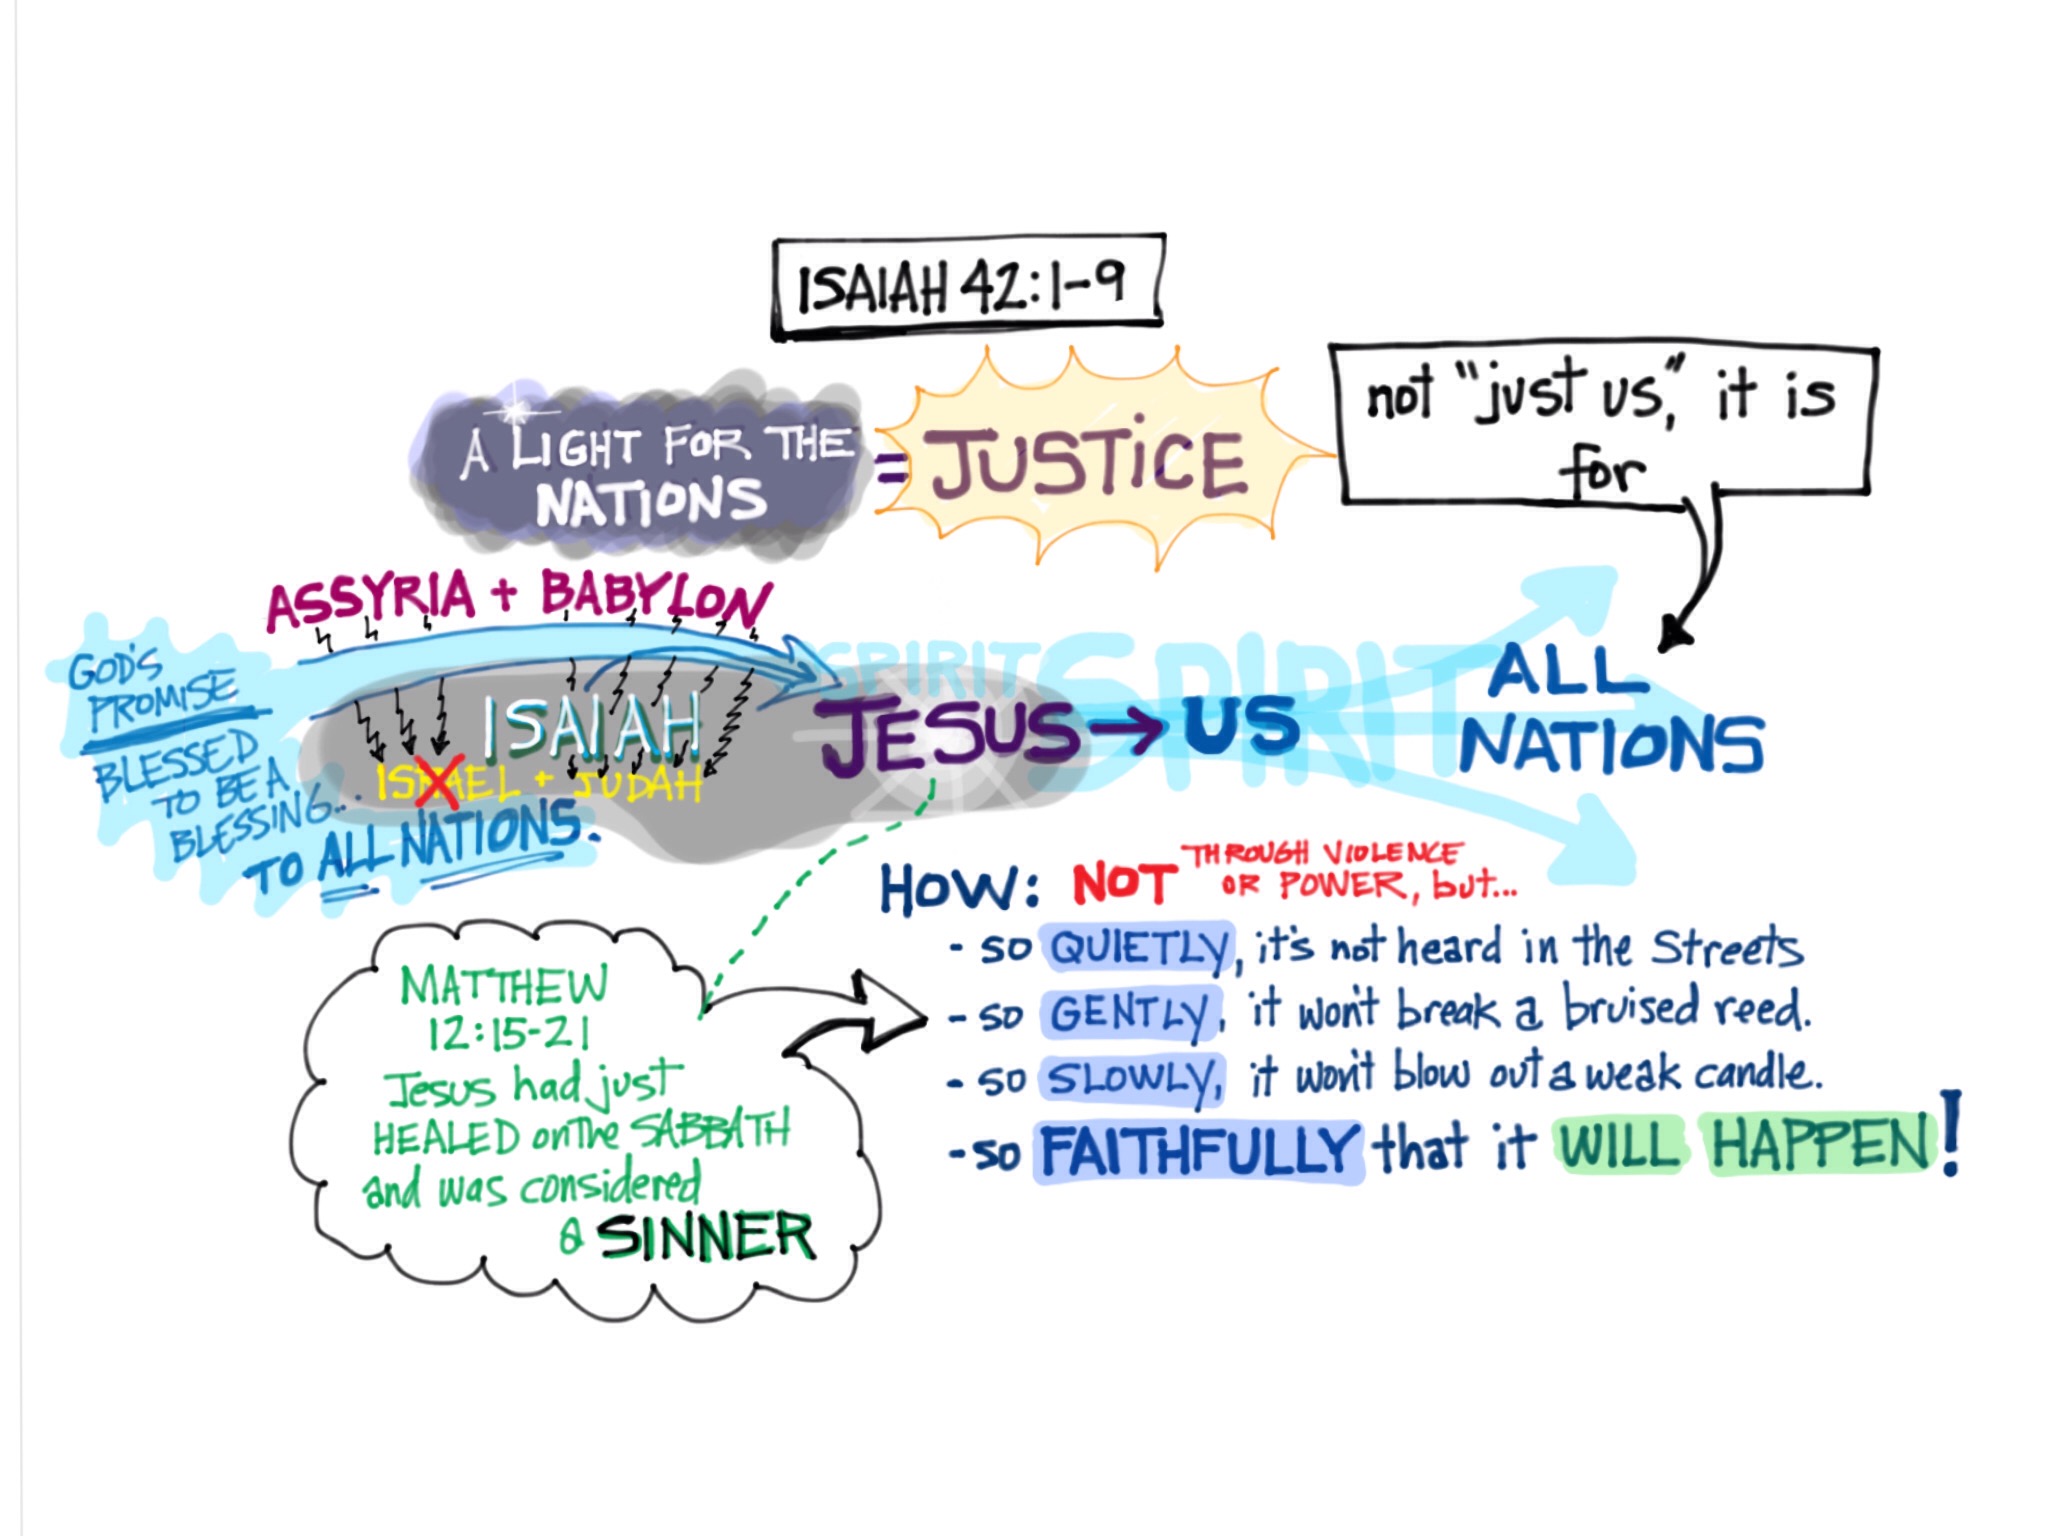 ISAIAH 42:1-9
A LIGHT FOR THE
NATIONS
=
JUSTiCE
not "just us," it is
for
ASSYRIA + BABYLON
GOD'S
PROMISE
BLESSED
TO BE A
BLESSING...
TO ALL NATIONS.
ISAIAH
ISRAEL + JUDAH
SPIRIT
SPIRIT
JESUS → US
ALL
NATIONS
HOW: NOT THROUGH VIOLENCE
OR POWER, but...
- so QUIETLY, it's not heard in the Streets
- so GENTLY, it won't break a bruised reed.
- so SLOWLY, it won't blow out a weak candle.
- so FAITHFULLY that it WILL HAPPEN!
MATTHEW
12:15-21
Jesus had just
HEALED on the SABBATH
and was considered
a SINNER